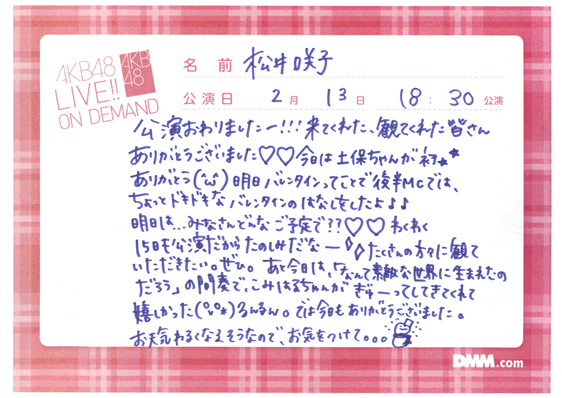 AKB48
LIVE!!
ON DEMAND
AKB
48
名 前 松井咲子
公演日 2月 13日 18:30公演
公演おわりましたー!!!来てくれた、観てくれた皆さん
ありがとうございました♡♡今日は土保ちゃんが初★★
ありがとう(^ω^)明日バレンタインってことで後半MCでは、
ちょっとドキドキなバレンタインのはなしをしたよ♪♪
明日は...みなさんどんなご予定で??♡♡わくわく
15日も公演だからたのしみだなー たくさんの方々に観て
いただきたい。ぜひ。あと今日は、「なんて素敵な世界に生まれたの
だろう」の間奏で、こみはるちゃんがぎゅーってしてきてくれて
嬉しかった るんるん。では今日もありがとうございました。
お天気わるくなるそうなので、お気をつけて。。。
DMM.com